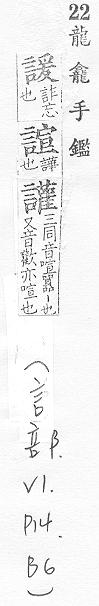 22 龍龕手鑑
諼 詐忘也 諠 譁也 讙 三同音喧囂丨也又音歡亦喧也
(言部. V1. P14. B6)